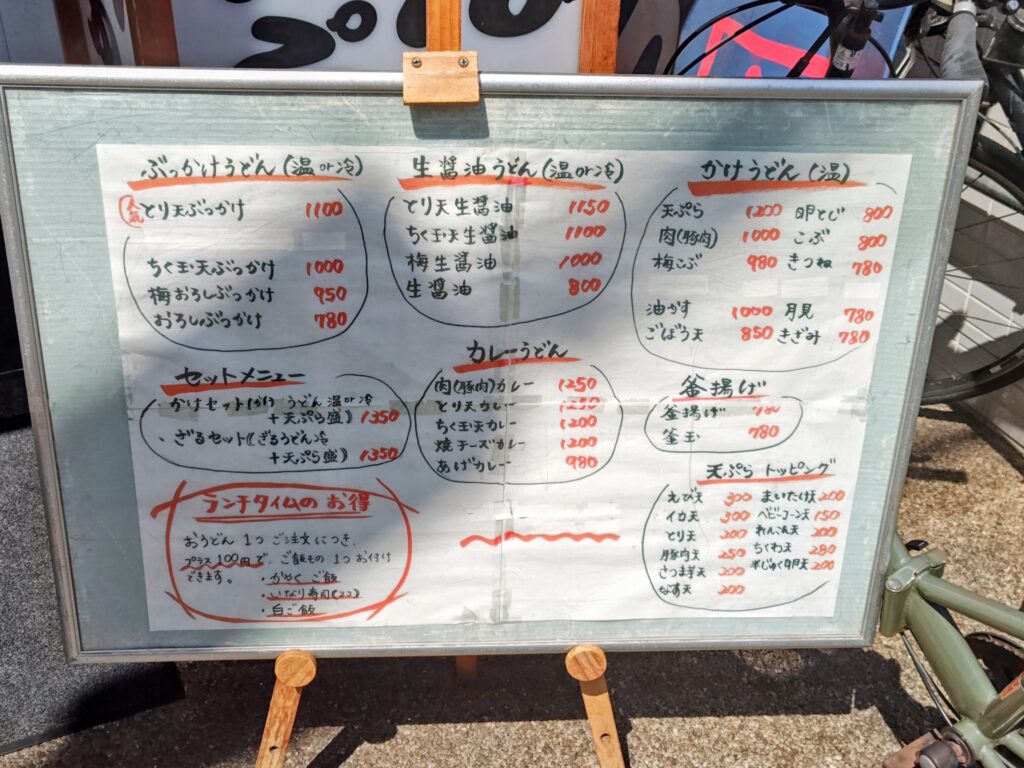 ぶっかけうどん(温or冷)
人気 とり天ぶっかけ 1100
ちく玉天ぶっかけ 1000
梅おろしぶっかけ 950
おろしぶっかけ 780
生醤油うどん(温or冷)
とり天生醤油 1150
ちく玉天生醤油 1100
梅生醤油 1000
生醤油 800
かけうどん(温)
天ぷら 1200 卵とじ 800
肉(豚肉) 1000 こぶ 800
梅こぶ 980 きつね 780
油かす 1000 月見 780
ごぼう天 850 きざみ 780
セットメニュー
かけセット(かけうどん 温or冷
+天ぷら盛) 1350
・ざるセット(ざるうどん冷
+天ぷら盛) 1350
カレーうどん
肉(豚肉)カレー 1250
とり天カレー 1250
ちく玉天カレー 1200
焼チーズカレー 1200
あげカレー 980
釜揚げ
釜揚げ 780
釜玉 780
ランチタイムのお得
おうどん1つご注文につき、
プラス100円で、ご飯もの1つお付け
できます。
・かやくご飯
・いなり寿司(2コ)
・白ご飯
天ぷらトッピング
えび天 300 まいたけ天 200
イカ天 300 ベビーコーン天 150
とり天 200 れんこん天 200
豚肉天 250 ちくわ天 280
さつまいも天 200 半じゅく卵天 200
なす天 200